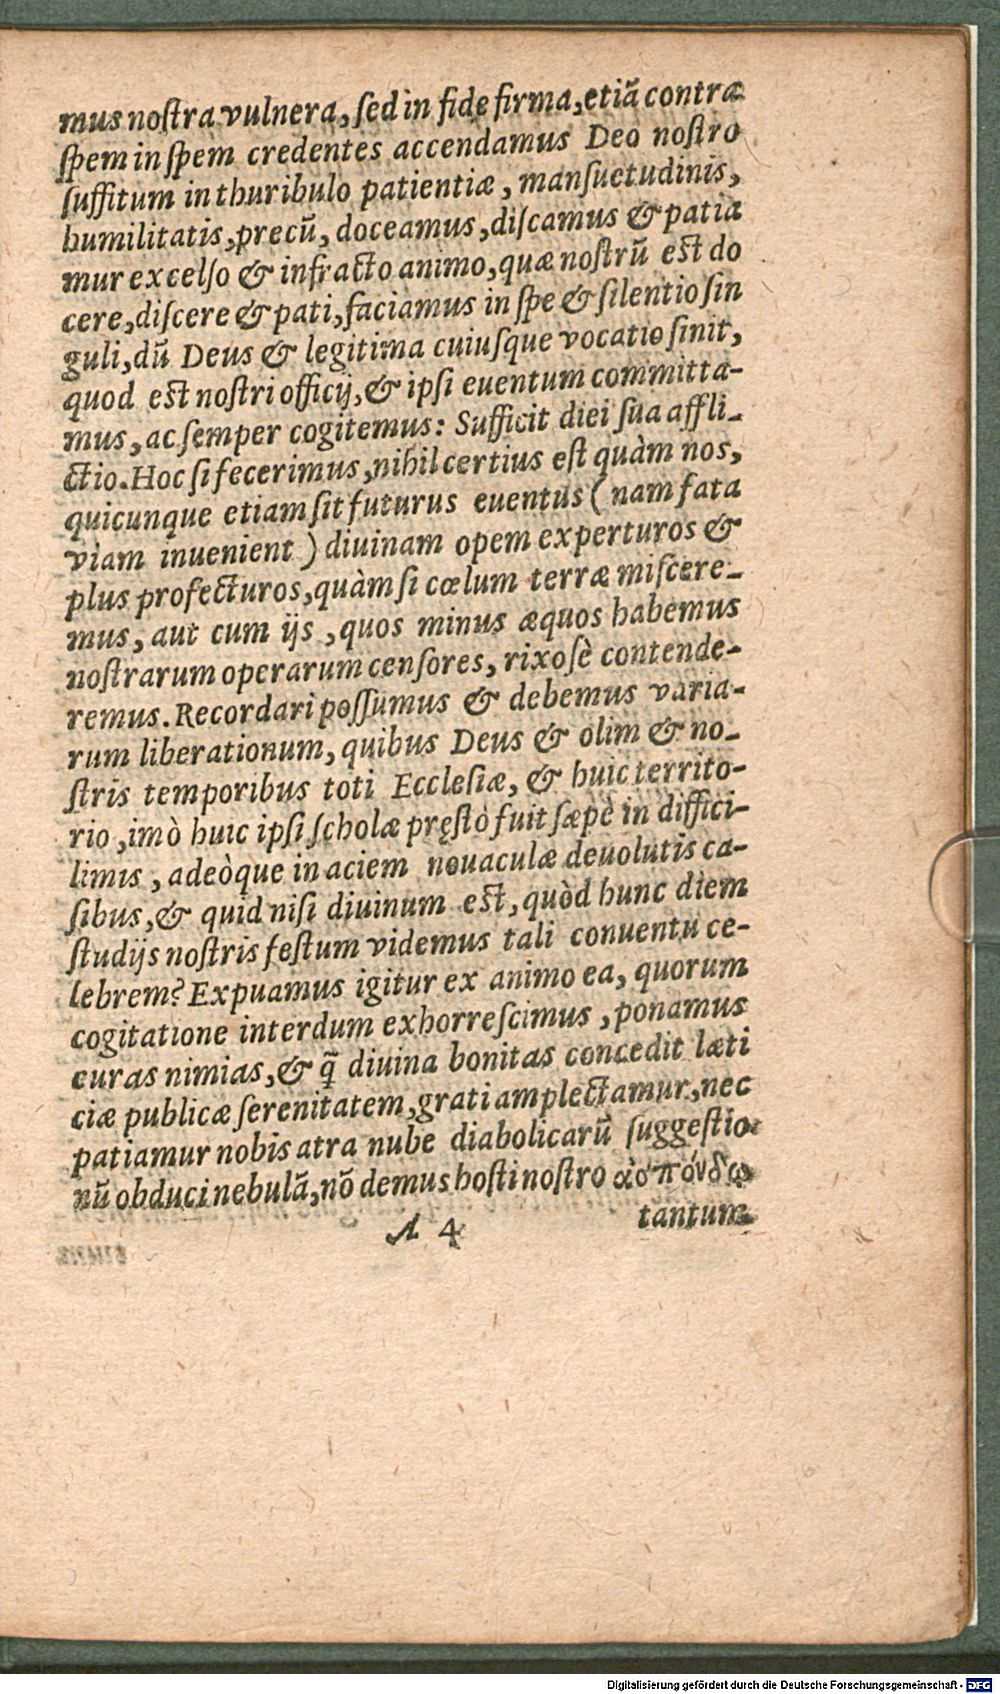 mus nostra vulnera, sed in fide firma, etiã contra
spem in spem credentes accendamus Deo nostro
suffitum in thuribulo patientiæ, mansuetudinis,
humilitatis, precũ, doceamus, discamus & patia
mur excelso & infracto animo, quæ nostrũ est do
cere, discere & pati, faciamus in spe & silentio sin
guli, dũ Deus & legitima cuiusque vocatio sinit,
quod est nostri officij, & ipsi euentum committa-
mus, ac semper cogitemus: Sufficit diei sua affli-
ctio. Hoc si fecerimus, nihil certius est quàm nos,
quicunque etiam sit futurus euentus (nam fata
viam inuenient) diuinam opem experturos &
plus profecturos, quàm si cœlum terræ miscere-
mus, aut cum ijs, quos minus æquos habemus
nostrarum operarum censores, rixosè contende-
remus. Recordari possumus & debemus varia-
rum liberationum, quibus Deus & olim & no-
stris temporibus toti Ecclesiæ, & huic territo-
rio, imò huic ipsi scholæ pręstò fuit sæpè in diffici-
limis, adeòque in aciem nouaculæ deuolutis ca-
sibus, & quid nisi diuinum est, quòd hunc diem
studijs nostris festum videmus tali conuentu ce-
lebrem? Expuamus igitur ex animo ea, quorum
cogitatione interdum exhorrescimus, ponamus
curas nimias, & q̃ diuina bonitas concedit læti
ciæ publicæ serenitatem, grati amplectamur, nec
patiamur nobis atra nube diabolicarũ suggestio-
nũ obduci nebulã, nõ demus hosti nostro ἀσπόνδῳ
tantum
A 4
Digitalisierung gefördert durch die Deutsche Forschungsgemeinschaft - DFG